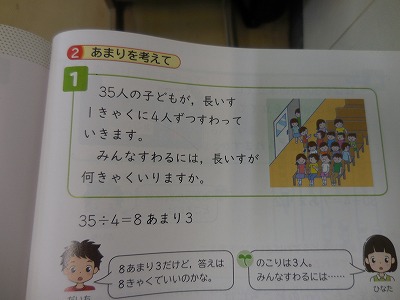 2 あまりを考えて
1
35人の子どもが，長いす
1きゃくに4人ずつすわって
いきます。
みんなすわるには，長いすが
何きゃくいりますか。
35÷4=8 あまり3
8あまり3だけど，答えは
8きゃくでいいのかな。
だいち
のこりは3人。
みんなすわるには……
ひなた